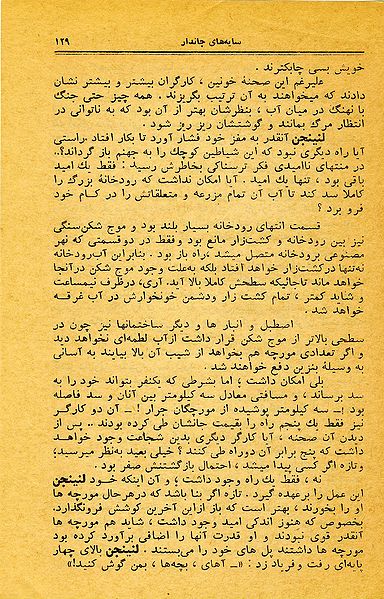 سایه‌های جاندار ۱۲۹
خویش بسی چابکترند .
علیرغم این صحنهٔ خونین ، کارگران بیشتر و بیشتر نشان
دادند که میخواهند به آن ترتیب بگریزند . همه چیز حتی جنگ
با نهنگ در میان آب ، بنظرشان بهتر از آن بود که به ناتوانی در
انتظار مرگ بمانند و گوشتشان ریز ریز شود .
لنینجن آنقدر به مغز خود فشار آورد تا بکار افتاد .راستی
آیا راه دیگری نبود که این شیاطین کوچك را به جهنم باز گرداند؟..
در منتهای ناامیدی فکر ترسناکی بخاطرش رسید : فقط یك امید
باقی بود ، تنها یك امید . آیا امکان نداشت که رودخانه بزرگ را
کاملا سد کند تا آب آن تمام مزرعه و متعلقاتش را در کام خود
فرو برد ؟
قسمت انتهای رودخانه بسیار بلند بود و موج شکن‌سنگی
نیز بین رودخانه و کشت‌زار مانع بود وفقط در دوقسمتی که نهر
مصنوعی برودخانه متصل میشد ،راه باز بود . بنابراین آب‌رودخانه
نه‌تنها درکشت‌زار خواهد افتاد بلکه به‌علت وجود موج شکن درآنجا
خواهد ماند تاجائیکه سطحش کاملا بالا آید. آری،درظرف نیمساعت
و شاید کمتر ، تمام کشت زار ودشمن خونخوارش در آب غرقه
خواهد شد .
اصطبل و انبار ها و دیگر ساختمانها نیز چون در
سطحی بالاتر از موج شکن قرار داشت ازآب لطمه‌ای نخواهد دید
و اگر تعدادی مورچه هم بخواهد از شیب آن بالا بیایند به آسانی
به وسیلهٔ بنزین دفع خواهند شد .
بلی امکان داشت ؛ اما بشرطی که یکنفر بتواند خود را به
سد برساند ، و مسافتی معادل سه کیلومتر بین آنان و سد فاصله
بود :ـ سه کیلومتر پوشیده از مورچگان جرار !ـ آن دو کارگر
نیز فقط یك پنجم راه را بقیمت جانشان طی کرده بودند .. پس از
دیدن آن صحنه ، آیا کارگر دیگری بدین شجاعت وجود خواهد
داشت که پنج برابر آن دوراه طی کنند ؟ خیلی بعید به‌نظر میرسید؛
وتازه اگر کسی پیدا میشد ، احتمال بازگشتنش صفر بود .
نه ، فقط یك راه وجود داشت ؛ و آن اینکه خود لنینجن
این عمل را برعهده گیرد . تازه اگر بنا باشد که درهرحال مورچه ها
او را بخورند ، بهتر است که باز ازاین آخرین کوشش فروگنذارد.
بخصوص که هنوز اندکی امید وجود داشت ، شاید هم مورچه ها
آنقدر قوی نبودند و او قدرت آنها را اضافی برآورد کرده بود
مورچه ها داشتند پل های خود را می‌بستند . لنینجن بالای چهار
پایه‌ای رفت و فریاد زد : «ـ آهای ، بچه‌ها ، بمن گوش کنید!»